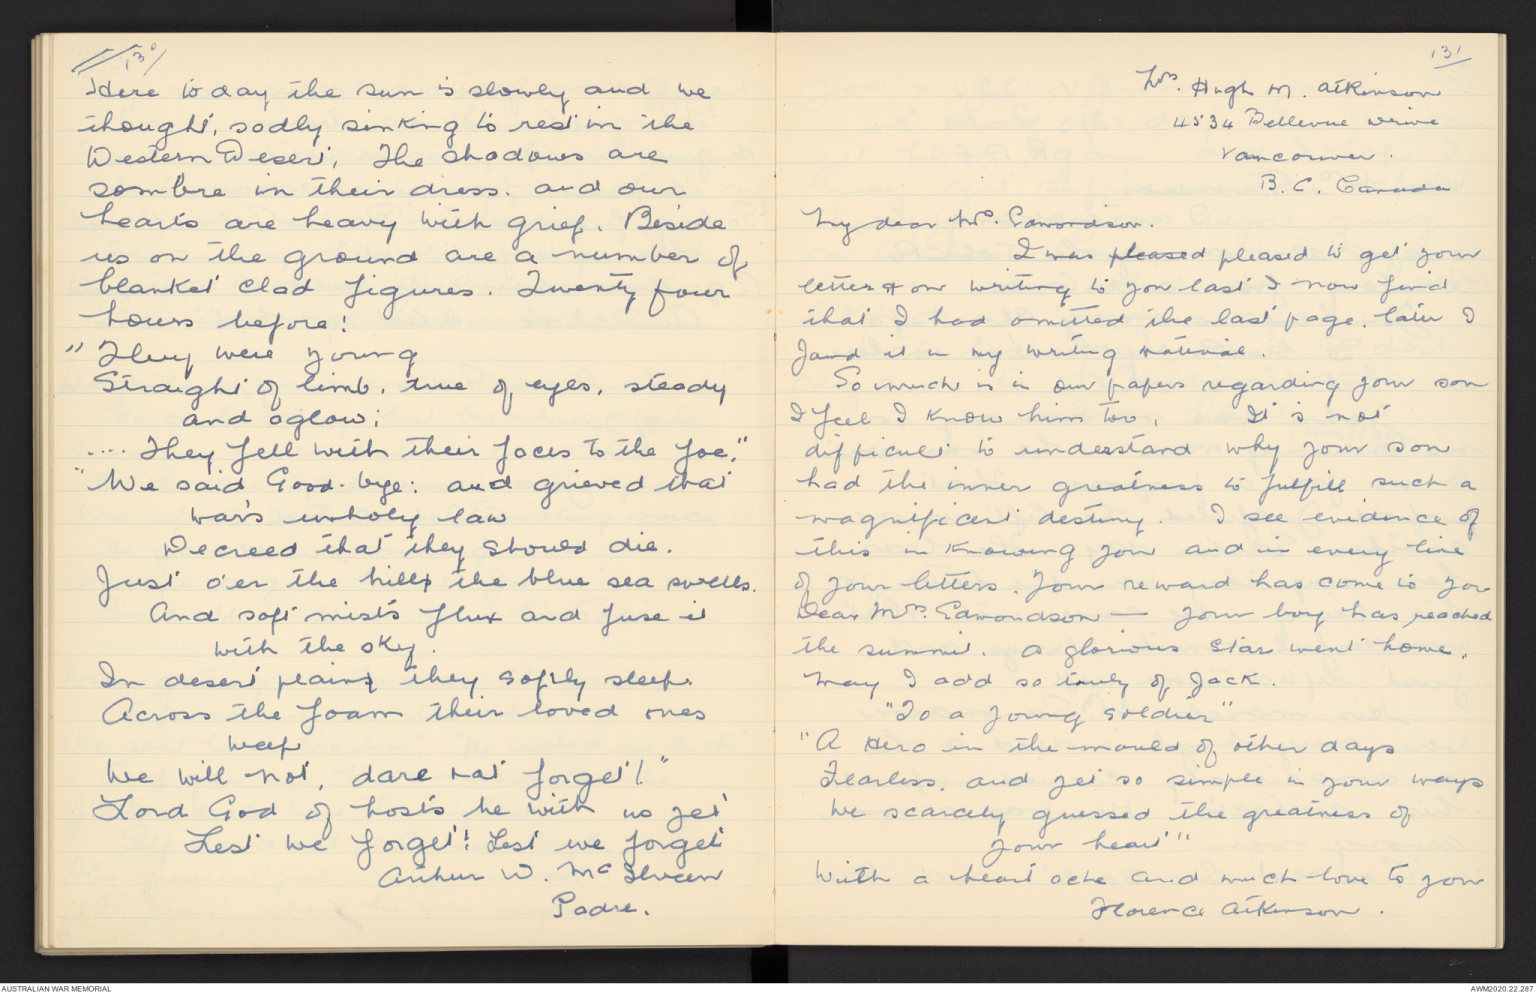 130
Here to day the sun is slowly and we
thought, sadly sinking to rest in the
Western Desert. The shadows are
sombre in their dress. and our
hearts are heavy with grief. Beside
us on the ground are a number of
blanket clad figures. Twenty four
hours before!
" They were young
Straight of limb, true of eyes, steady
and aglow;
.... They fell with their faces to the foe."
"We said Good-bye: and grieved that
war's unholy law
Decreed that they should die.
Just o'er the hills the blue sea swells.
And soft mists flux and fuse it
with the sky.
In desert plains they softly sleep.
Across the foam their loved ones
weep
We will not, dare not forget!"
Lord God of hosts be with us yet
Lest we forget! Lest we forget
Arthur W. McIlveen
Padre.
131
Mrs. Hugh M. Atkinson
4534 Bellevue Drive
Vancouver.
B. C. Canada
My dear Mrs. Edmondson.
I was pleased pleased to get your
letter & on writing to you last I now find
that I had omitted the last page. later I
found it in my writing material.
So much is in our papers regarding your son
I feel I know him too. It is not
difficult to understand why your son
had the inner greatness to fulfill such a
magnificent destiny. I see evidence of
this in knowing you and in every line
of your letters. Your reward has come to you
Dear Mrs. Edmondson — your boy has reached
the summit. A glorious star went home.
May I add so truly of Jack.
"To a young soldier"
"A Hero in the mould of other days
Fearless, and yet so simple in your ways
We scarcely guessed the greatness of
your heart"
With a heart ache and much love to you
Florence Atkinson.
AUSTRALIAN WAR MEMORIAL
AWM2020.22.287